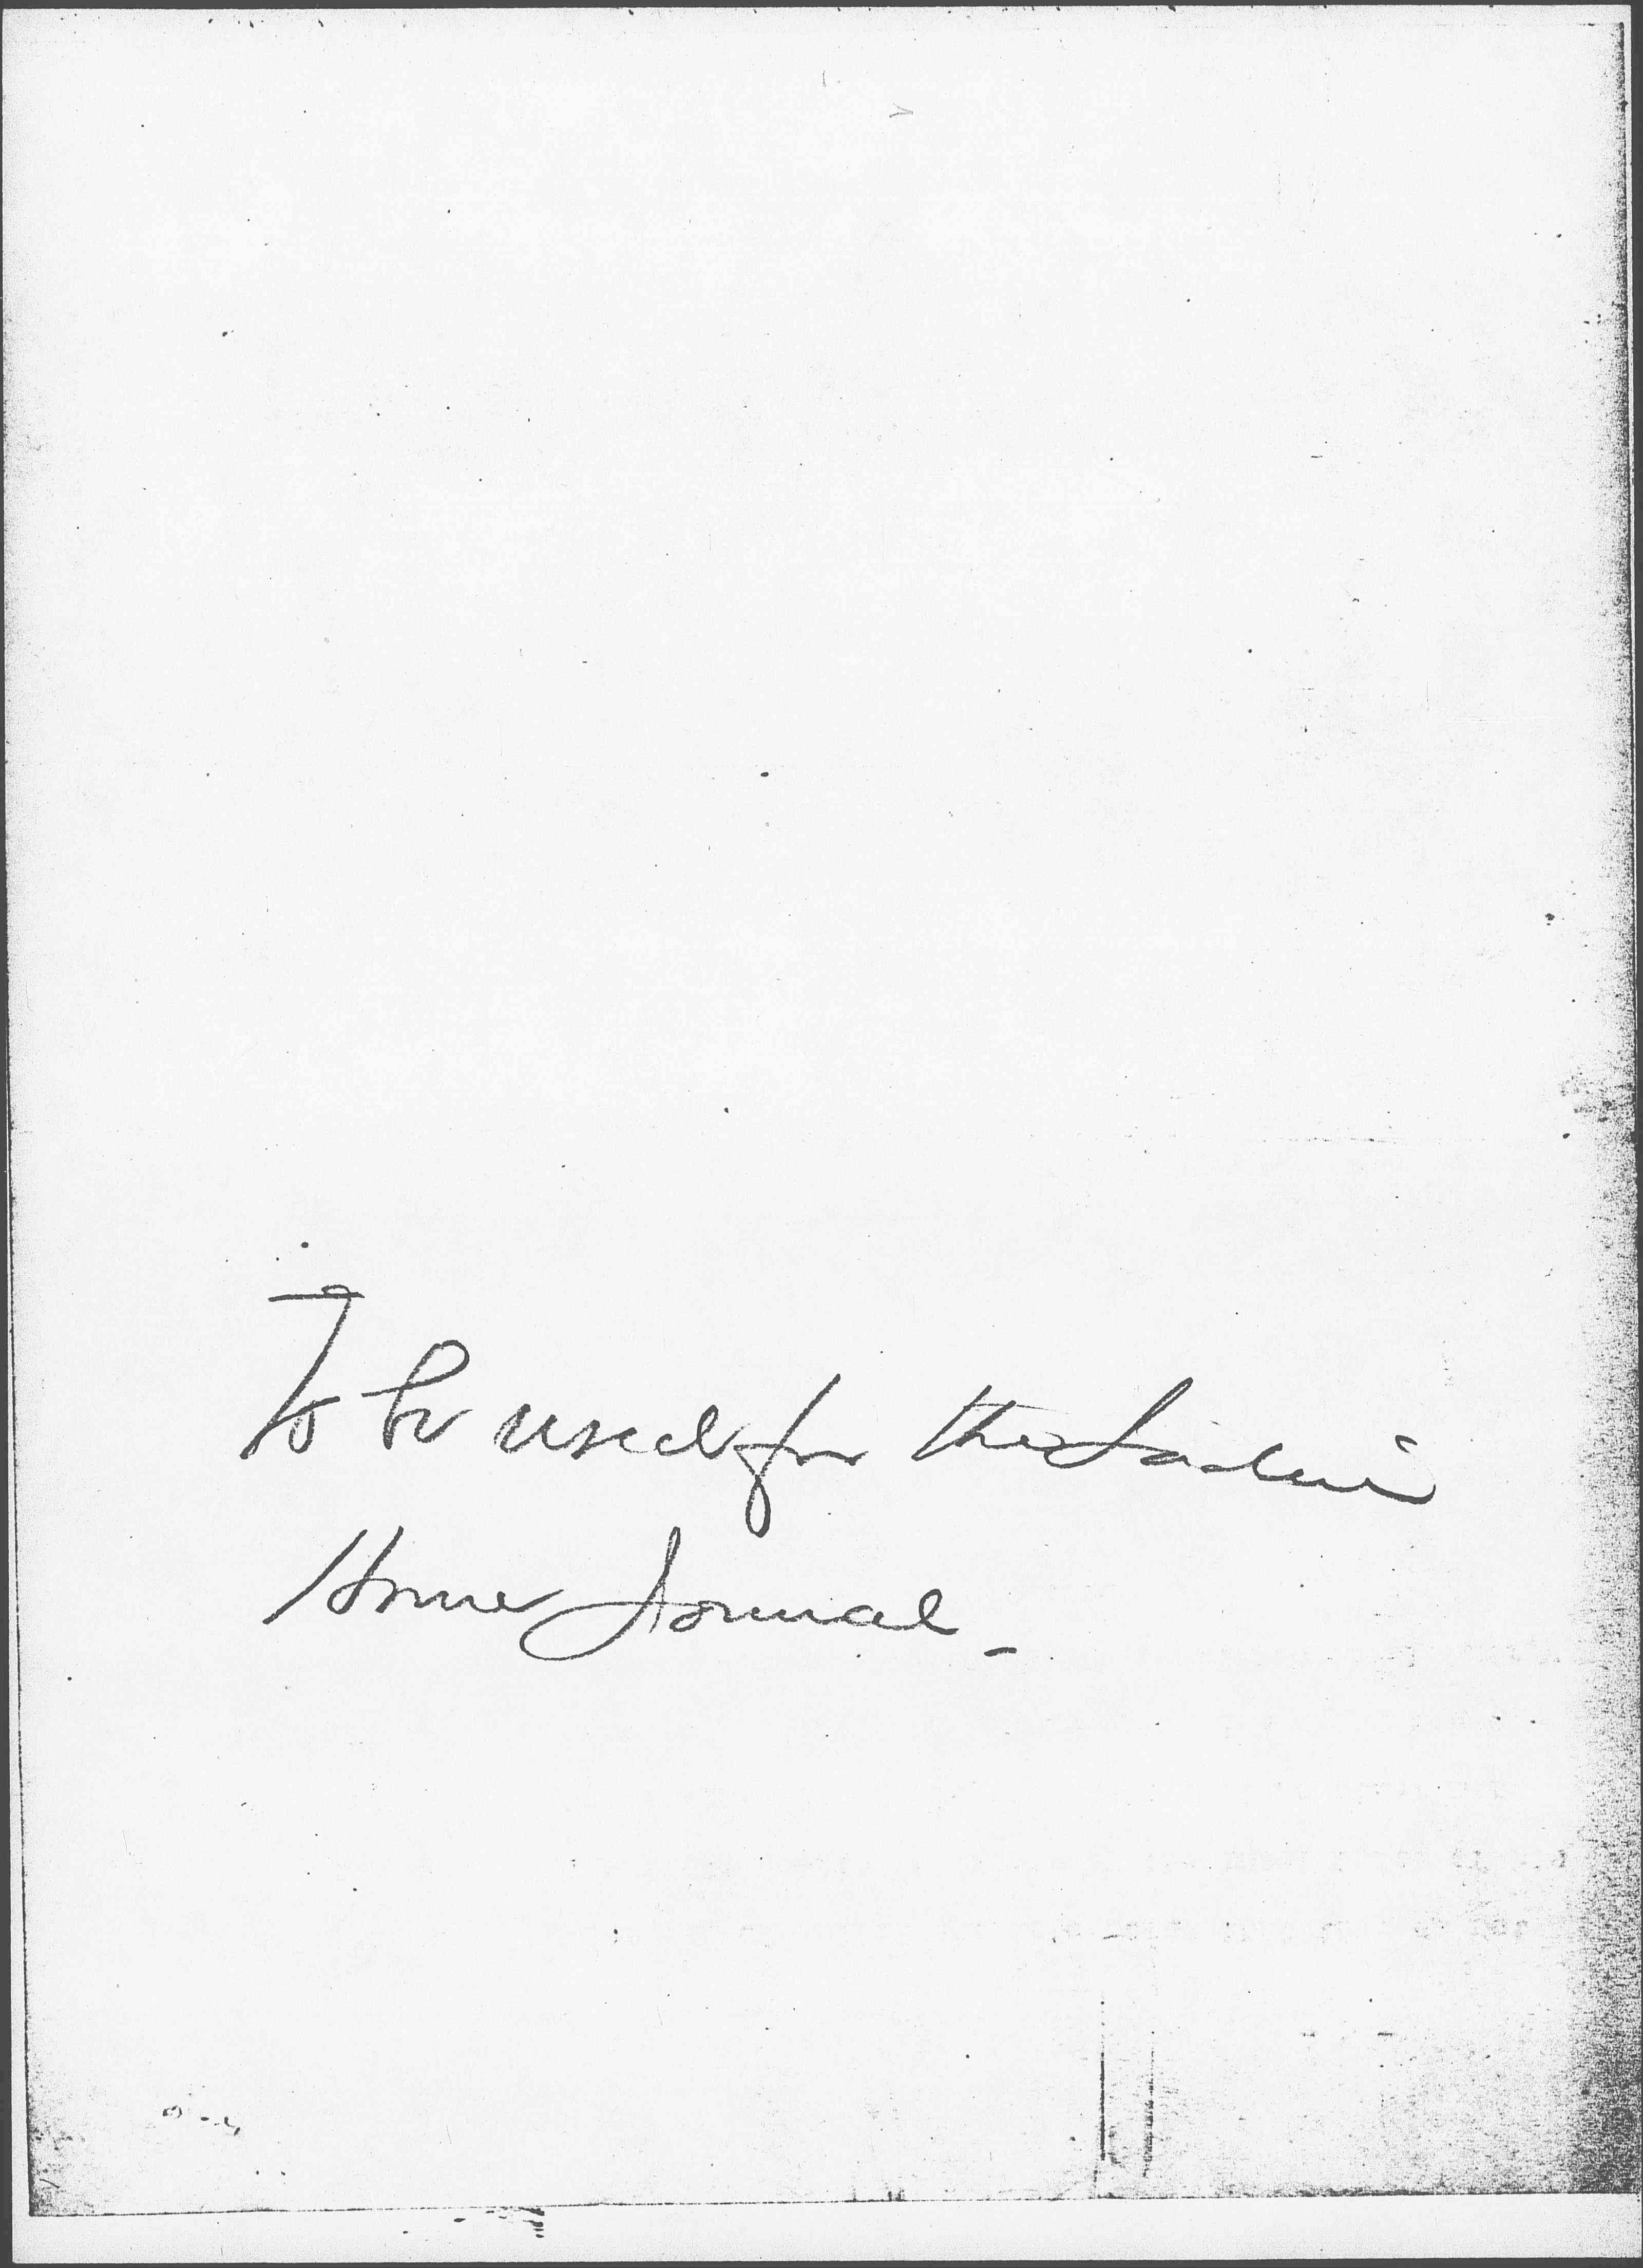 To be used for the Ladies
Home Journal_